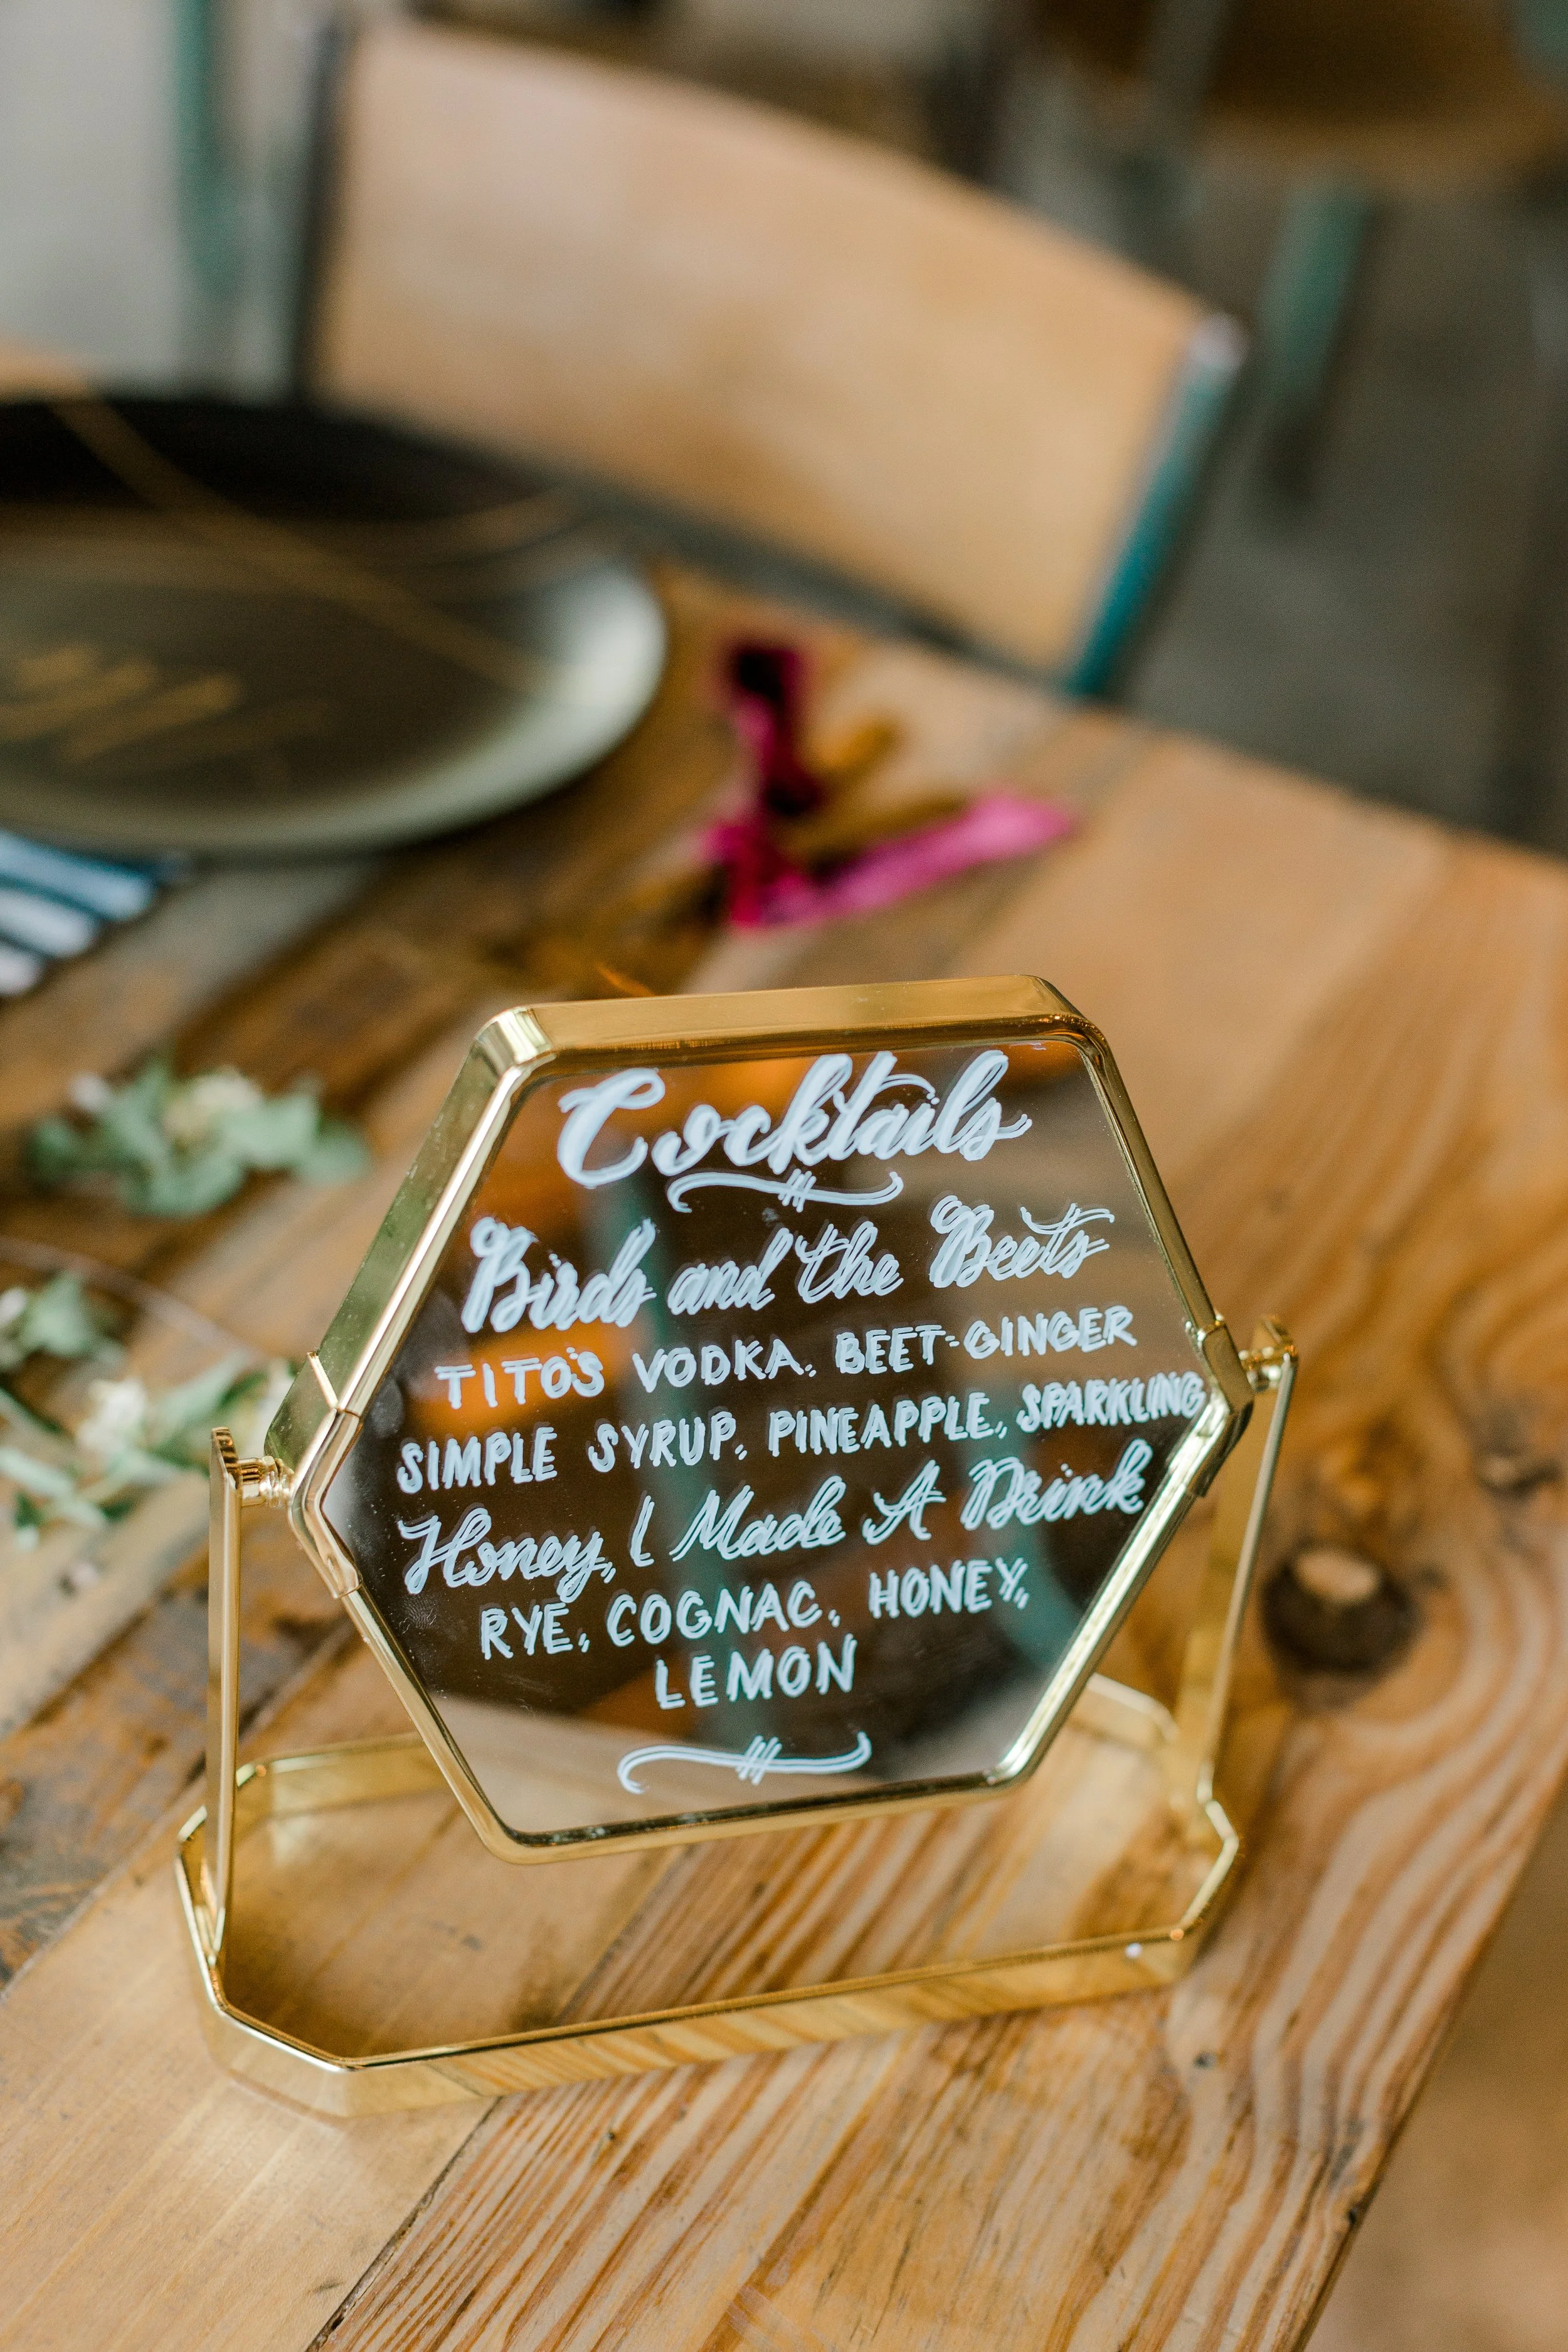 Cocktails
Birds and the Beets
TITO'S VODKA, BEET-GINGER
SIMPLE SYRUP, PINEAPPLE, SPARKLING
Honey, I Made A Drink
RYE, COGNAC, HONEY,
LEMON